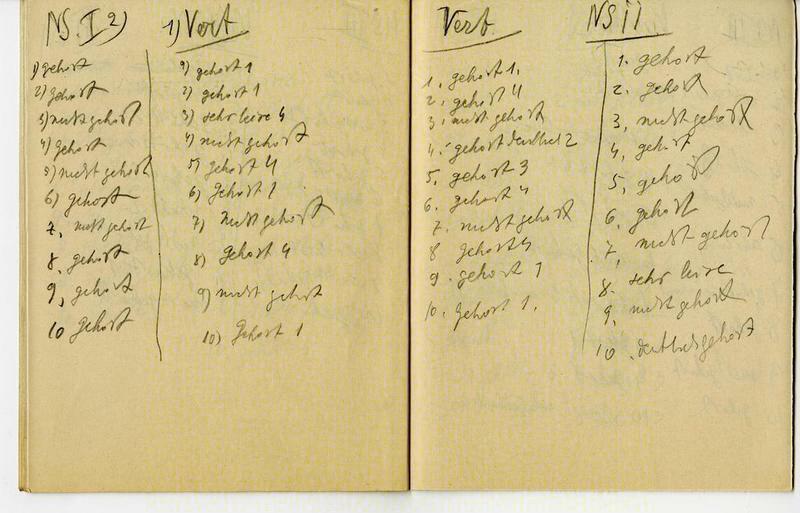 NS. I 2)
1) gehört
2) gehört
3) nicht gehört
4) gehört
5) nicht gehört
6) gehört
7, nicht gehört
8, gehört
9, gehört
10 gehört
1) Vert
1) gehört 1
2) gehört 1
3) sehr leise 4
4) nicht gehört
5) gehört 4
6) gehört 1
7) nicht gehört
8) gehört 4
9) nicht gehört
10) gehört 1
Vert
1. gehört 1.
2. gehört 4
3. nicht gehört
4. gehört deutlich 2
5. gehört 3
6. gehört 4
7. nicht gehört
8 gehört 4
9. gehört 1
10. gehört 1.
NS II
1. gehört
2. gehört
3, nicht gehört
4, gehört
5, gehört
6. gehört
7, nicht gehört
8. sehr leise
9, nicht gehört
10. deutlich gehört